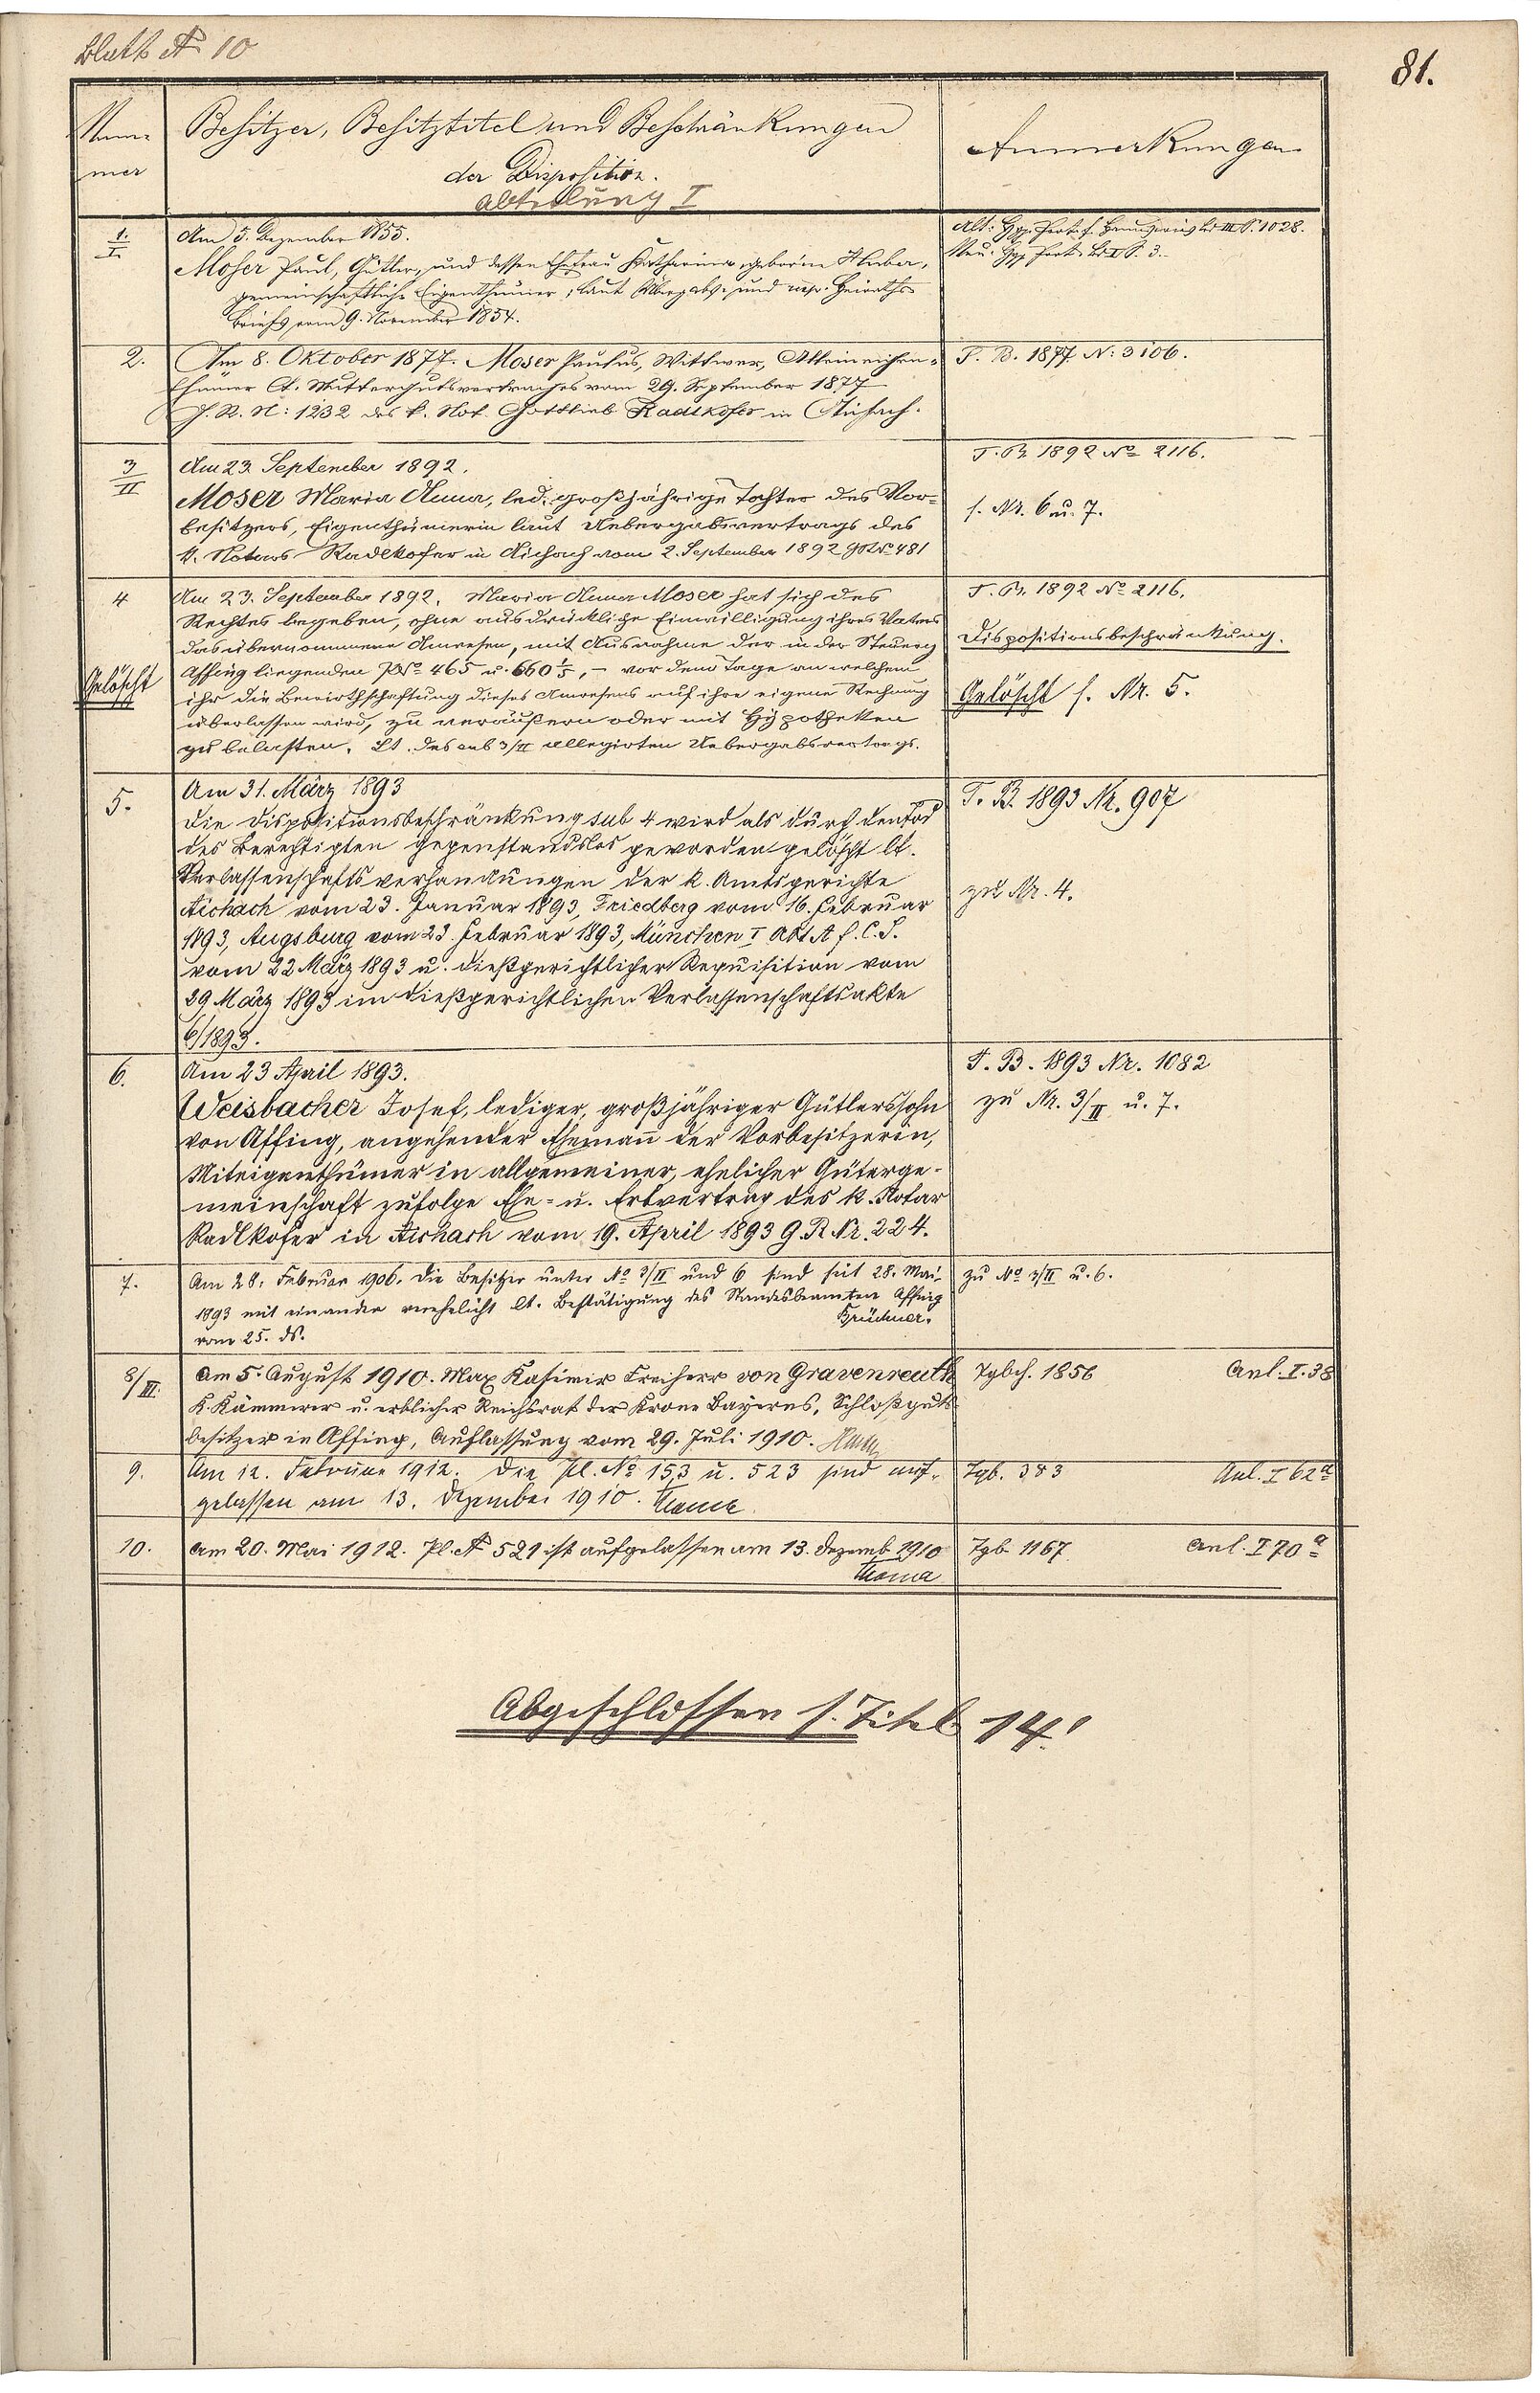 Blatt № 10
81.
Num-
mer
Besitzer, Besitztitel und Beschränkungen
der Disposition.
Abteilung I
Anmerkungen
1.
I.
Am 5. Dezember 1855.
Moser Paul, Gütler, und dessen Ehefrau Katharina, geborne Huber,
gemeinschaftliche Eigenthümer, laut Übergabs- und resp. Heiraths-
briefs vom 9. November 1854.
Alt: Hyp. Prot. f. III S. 1028.
Neu: Hyp. Prot. Bd. I S. 3.
2.
Am 8. Oktober 1877. Moser Paulus, Wittwer, Alleineigen-
thümer lt. Muttergutsvertrages vom 29. September 1877
G. R. N: 1232 des k. Not. Gottlieb Radlkofer in Aichach.
T. B. 1877 N: 3106.
3
II
Am 23. September 1892.
Moser Maria Anna, led. großjährige Tochter des Vor-
besitzers, Eigenthümerin laut Uebergabsvertrags des
k. Notars Radlkofer in Aichach vom 2. September 1892 GR№ 481
T. B. 1892 № 2116.
s. Nr. 6 u. 7.
4
Gelöscht
Am 23. September 1892. Maria Anna Moser hat sich des
Rechtes begeben, ohne ausdrückliche Einwilligung ihres Vaters
das übernommene Anwesen, mit Ausnahme der in der Steuerg
Affing liegenden Pl№ 465 u. 660 1/5, – vor dem Tage an welchem
ihr die Bewirthschaftung dieses Anwesens auf ihre eigene Rechnung
überlassen wird, zu veräußern oder mit Hypotheken
zu belasten. Lt. des sub 3/II allegirten Uebergabsvertrags.
T. B. 1892 № 2116.
Dispositionsbeschränkung.
Gelöscht s. Nr. 5.
5.
Am 31. März 1893
Die Dispositionsbeschränkung sub 4 wird als durch den Tod
des Berechtigten gegenstandslos geworden gelöscht lt.
Verlassenschaftsverhandlungen der k. Amtsgerichte
Aichach vom 23. Januar 1893, Friedberg vom 16. Februar
1893, Augsburg vom 23. Februar 1893, München I Abt A f. C. S.
vom 22 März 1893 u. dießgerichtlicher Requisition vom
29. März 1893 im dießgerichtlichen Verlassenschaftsakte
6/1893.
T. B. 1893 Nr. 907
zu Nr. 4.
6.
Am 23 April 1893.
Weisbacher Josef, lediger, großjähriger Gütlerssohn
von Affing, angehender Ehemann der Vorbesitzerin,
Miteigenthümer in allgemeiner, ehelicher Güterge-
meinschaft zufolge Ehe- u. Erbvertrag des k. Notar
Radlkofer in Aichach vom 19. April 1893 G. R Nr. 224.
T. B. 1893 Nr. 1082
zu Nr. 3/II u. 7.
7.
Am 28. Februar 1906. Die Besitzer unter № 3/II und 6 sind seit 28. Mai
1893 mit einander verehelicht lt. Bestätigung des Standesbeamten Affing
vom 25. ds.
zu № 3/II u. 6.
8/III.
Am 5. August 1910. Max Kasimir Freiherr von Gravenreuth
K. Kämmerer u. erblicher Reichsrat der Krone Bayerns, Schloßguts-
besitzer in Affing, Auflassung vom 29. Juli 1910.
Tgbch. 1856 Anl. I. 38
9.
Am 12. Februar 1912. Die Pl. № 153 u. 523 sind auf-
gelassen am 13. Dezember 1910. Thoma
Tgb. 383 Anl. I 62a
10.
Am 20. Mai 1912. Pl. № 521 ist aufgelassen am 13. Dezemb. 1910
Thoma
Tgb 1167 Anl. I 70a
Abgeschlossen s. Titel 14!